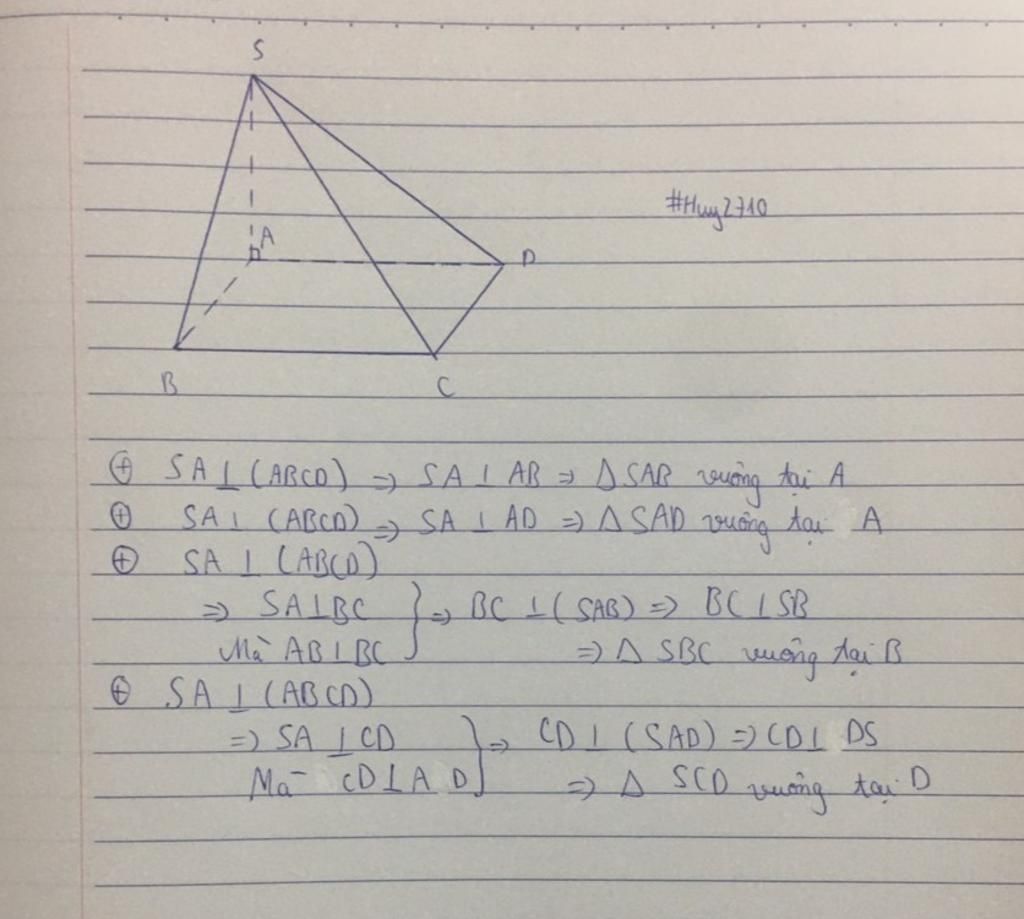 S
#Huy2710
A
D
B
C
⊕ SA ⊥ (ABCD) => SA ⊥ AB => Δ SAB vuông tại A
⊕ SA ⊥ (ABCD) => SA ⊥ AD => Δ SAD vuông tại A
⊕ SA ⊥ (ABCD)
=> SA ⊥ BC } => BC ⊥ (SAB) => BC ⊥ SB
Mà AB ⊥ BC => Δ SBC vuông tại B
⊕ SA ⊥ (ABCD)
=> SA ⊥ CD } => CD ⊥ (SAD) => CD ⊥ DS
Mà CD ⊥ AD => Δ SCD vuông tại D